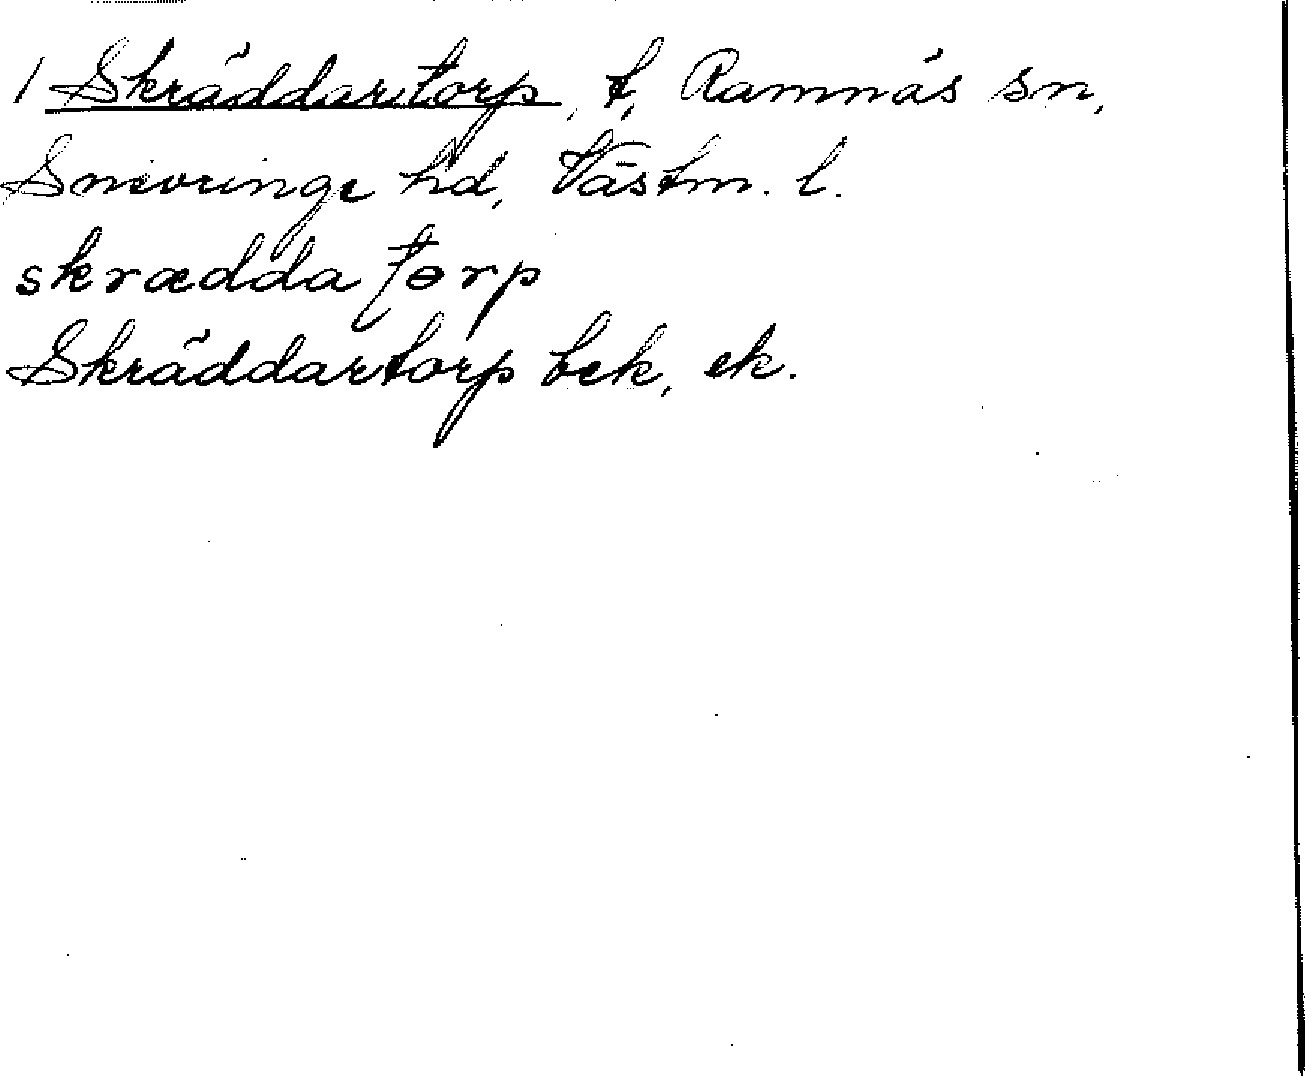 1 Skräddartorp, t, Ramnäs sn,
Snevringe hd, Västm. l.
skrædda tørp
Skräddartorp bek, ek.